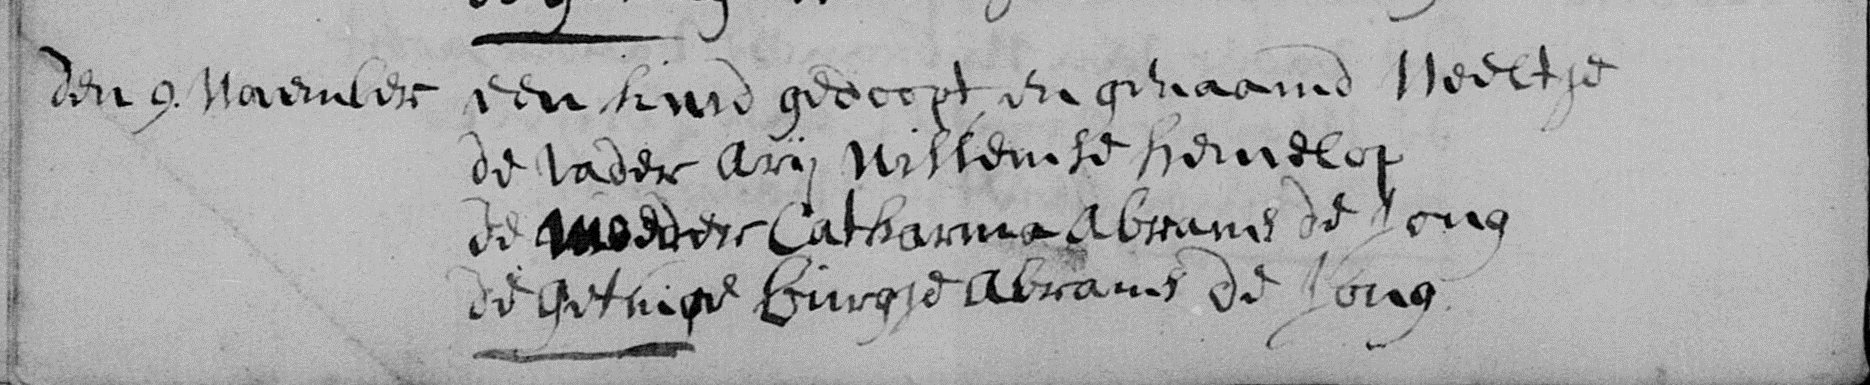 den 9. November een kind gedoopt, en genaamd Neeltje
de vader Arij Willemse Hendlop
de moeder Catharina Abrams de Jong
de getuige Burgje Abrams de Jong.